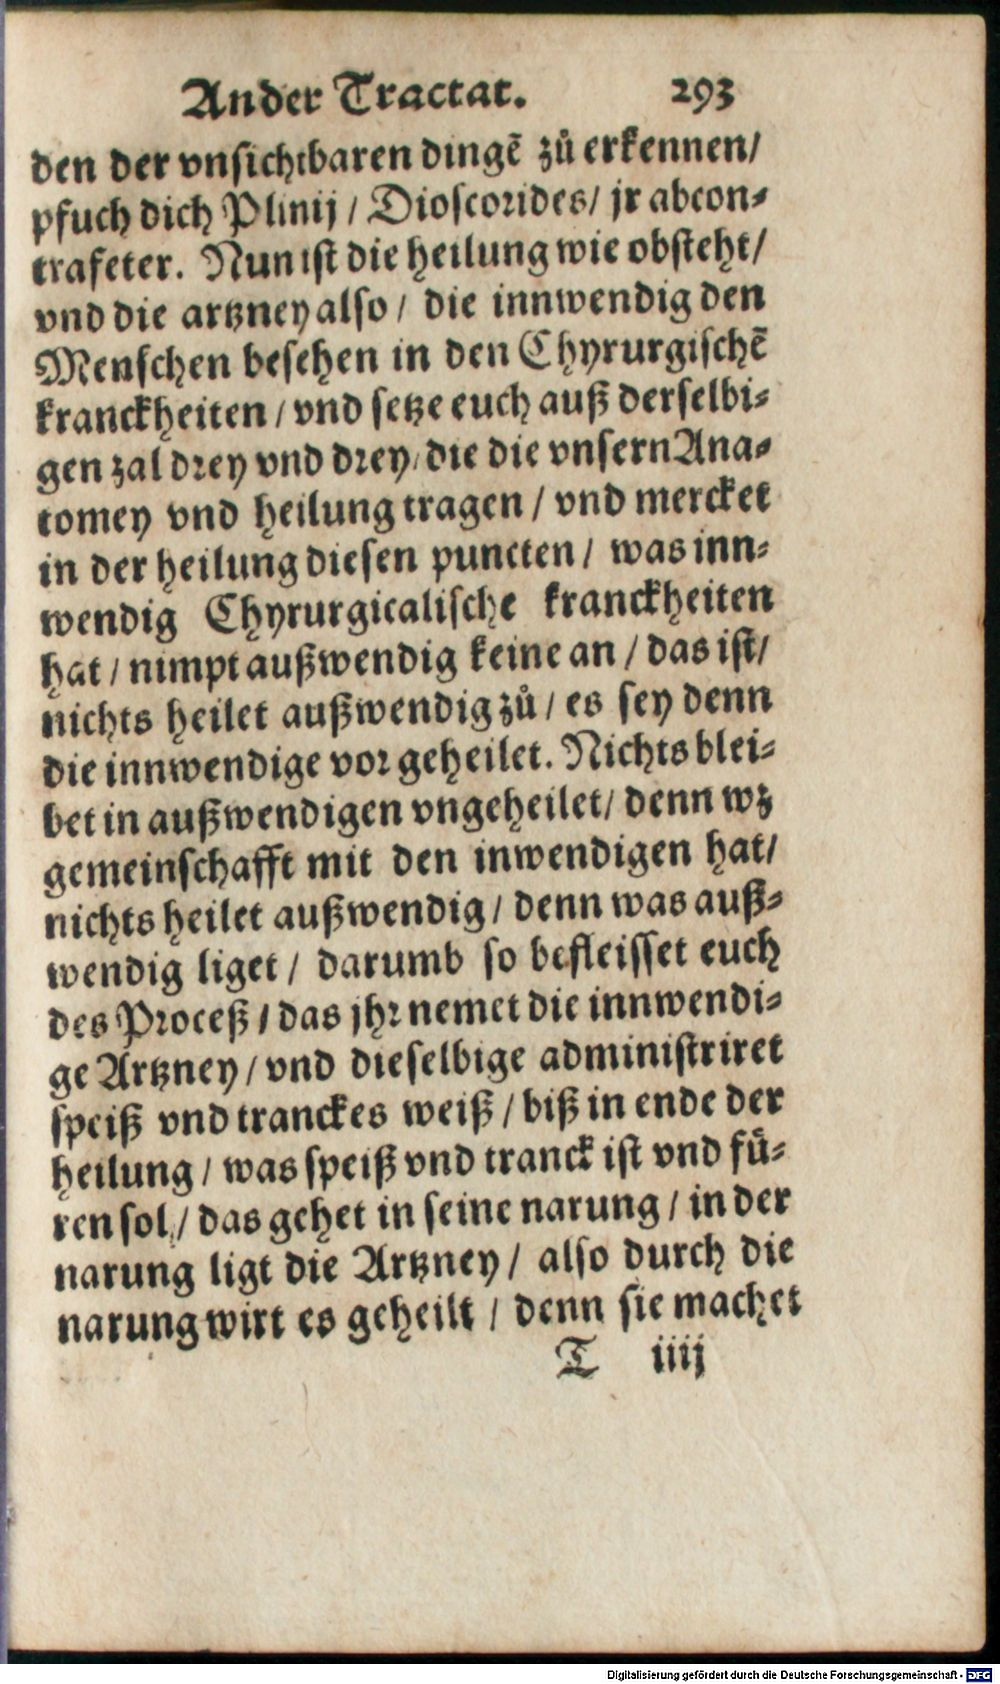 Ander Tractat. 293
den der vnsichtbaren dingẽ zů erkennen/
pfuch dich Plinij / Dioscorides/ jr abcon⸗
trafeter. Nun ist die heilung wie obsteht/
vnd die artzney also / die innwendig den
Menschen besehen in den Chyrurgischẽ
kranckheiten / vnd setze euch auß derselbi⸗
gen zal drey vnd drey/ die die vnsern Ana⸗
tomey vnd heilung tragen / vnd mercket
in der heilung diesen puncten / was inn⸗
wendig Chyrurgicalische kranckheiten
hat / nimpt außwendig keine an / das ist/
nichts heilet außwendig zů / es sey denn
die innwendige vor geheilet. Nichts blei⸗
bet in außwendigen vngeheilet/ denn wz
gemeinschafft mit den inwendigen hat/
nichts heilet außwendig / denn was auß⸗
wendig liget / darumb so befleisset euch
des Proceß / das jhr nemet die innwendi⸗
ge Artzney / vnd dieselbige administriret
speiß vnd tranckes weiß / biß in ende der
heilung / was speiß vnd tranck ist vnd fü⸗
ren sol / das gehet in seine narung / in der
narung ligt die Artzney / also durch die
narung wirt es geheilt / denn sie machet
T iiij
Digitalisierung gefördert durch die Deutsche Forschungsgemeinschaft - DFG